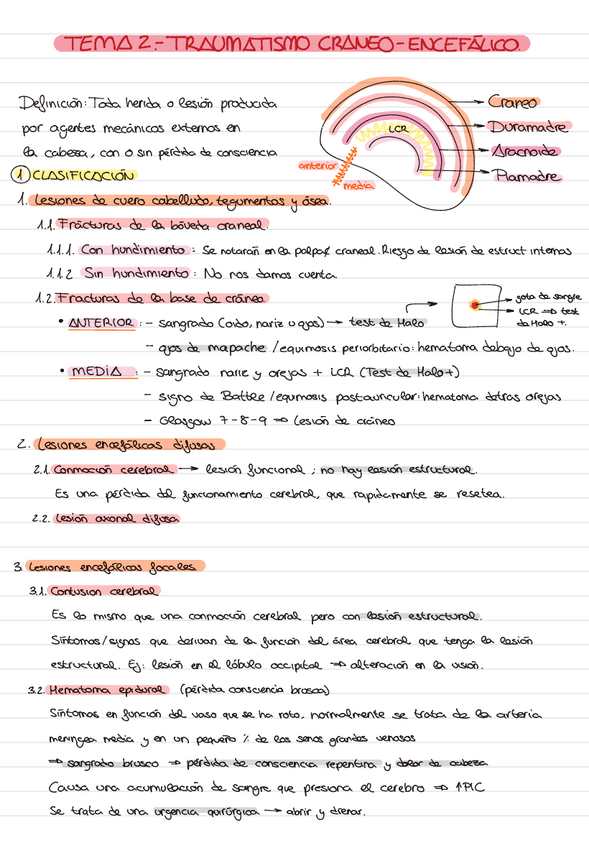 TEMA 2.- TRAUMATISMO CRANEO-ENCEFÁLICO.
Definición: Toda herida o lesión producida
por agentes mecánicos externos en
la cabeza, con o sin pérdida de consciencia
Craneo
Duramadre
Aracnoide
Piamadre
LCR
anterior
media
1 CLASIFICACIÓN
1. Lesiones de cuero cabelludo, tegumentos y ósea.
1.1. Fracturas de la bóveta craneal.
1.1.1. Con hundimiento: Se notarán en la palpaº craneal. Riesgo de lesión de estruct internas
1.1.2 Sin hundimiento: No nos damos cuenta.
1.2. Fracturas de la base de cráneo
• ANTERIOR: - sangrado (oído, nariz u ojos) → test de Halo
gota de sangre
LCR ⇒ test
de Halo +.
- ojos de mapache / equimosis periorbitario: hematoma debajo de ojos.
• MEDIA: - sangrado nariz y orejas + LCR (Test de Halo+)
- signo de Battle / equimosis postauricular: hematoma detrás orejas
- Glasgow 7-8-9 ⇒ Lesión de cráneo
2. Lesiones encefálicas difusas
2.1. Conmoción cerebral → lesión funcional; no hay lesión estructural.
Es una pérdida del funcionamiento cerebral, que rapidamente se resetea.
2.2. Lesión axonal difusa
3. Lesiones encefálicas focales
3.1. Contusion cerebral
Es lo mismo que una conmoción cerebral pero con lesión estructural.
Síntomas/signos que derivan de la función del área cerebral que tenga la lesión
estructural. Ej: lesión en el lóbulo occipital ⇒ alteración en la visión.
3.2. Hematoma epidural (pérdida consciencia brusca)
Síntomas en función del vaso que se ha roto, normalmente se trata de la arteria
meníngea media y en un pequeño % de los senos grandes venosos
⇒ sangrado brusco ⇒ pérdida de consciencia repentina y dolor de cabeza
Causa una acumulación de sangre que presiona el cerebro ⇒ ↑PIC
Se trata de una urgencia quirúrgica → abrir y drenar.